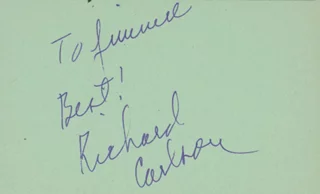 To Jimmie
Best!
Richard
Carlson